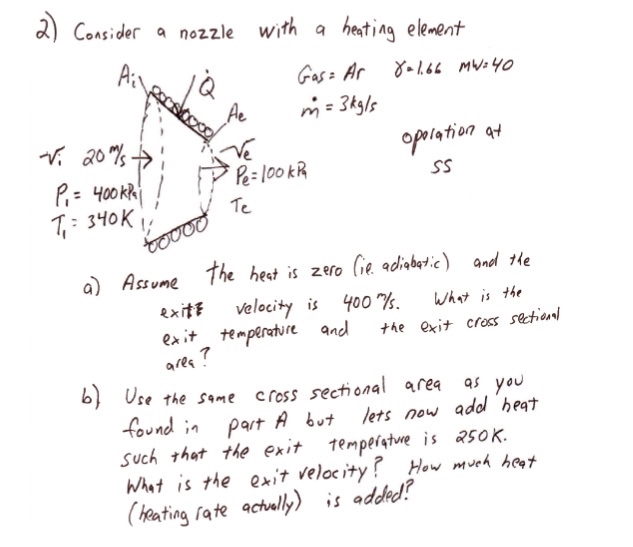 2) Consider a nozzle with a heating element
Ai Q̇ Gas = Ar γ=1.66 MW=40
Ae ṁ = 3kg/s
Vi 20 m/s → Ve operation at
Pe=100kPa SS
P₁ = 400kPa
T₁ = 340K Te
a) Assume the heat is zero (ie. adiabatic) and the
exit velocity is 400 m/s. What is the
exit temperature and the exit cross sectional
area?
b) Use the same cross sectional area as you
found in part A but lets now add heat
such that the exit temperature is 250K.
What is the exit velocity? How much heat
(heating rate actually) is added?